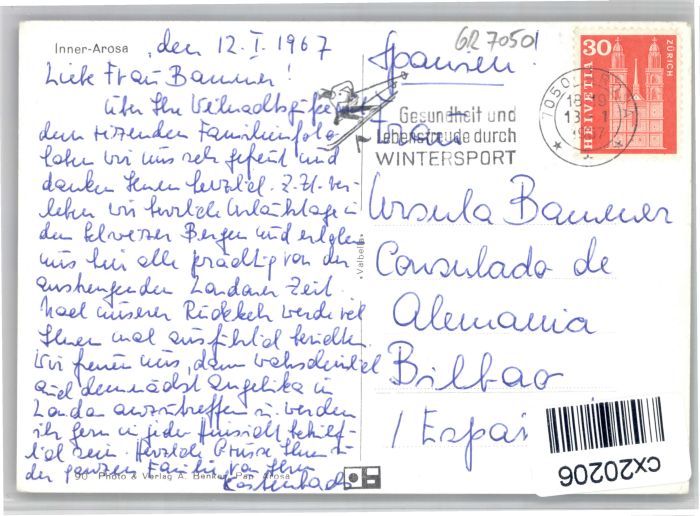 Inner-Arosa, den 12. I. 1967
Liebe Frau Bammer!
über Ihre Weihnachtsgrüße
dem reizenden Familienfoto
haben wir uns sehr gefreut und
danken Ihnen herzlich. Z.Zt. ver-
leben wir herrliche Urlaubstage in
den Schweizer Bergen und erholen
uns hier alle prächtig von der
anstrengenden Londoner Zeit.
Nach unserer Rückkehr werde ich
Ihnen mal ausführlich berichten.
Wir freuen uns, dann wahrscheinlich
auch demnächst Angelika in
London anzutreffen u. werden
ihr gern in jeder Hinsicht behilf-
lich sein. Herzliche Grüsse Ihnen u.
der ganzen Familie von Ihren
90 Photo & Verlag A. Pap. Arosa
«Valbella»
GR 7050
Spanien!
Gesundheit und
Lebensfreude durch
WINTERSPORT
7050
13. 1
30
HELVETIA
ZÜRICH
Frau
Ursula Bammer
Consulado de
Alemania
Bilbao
/ Espa
cx20206